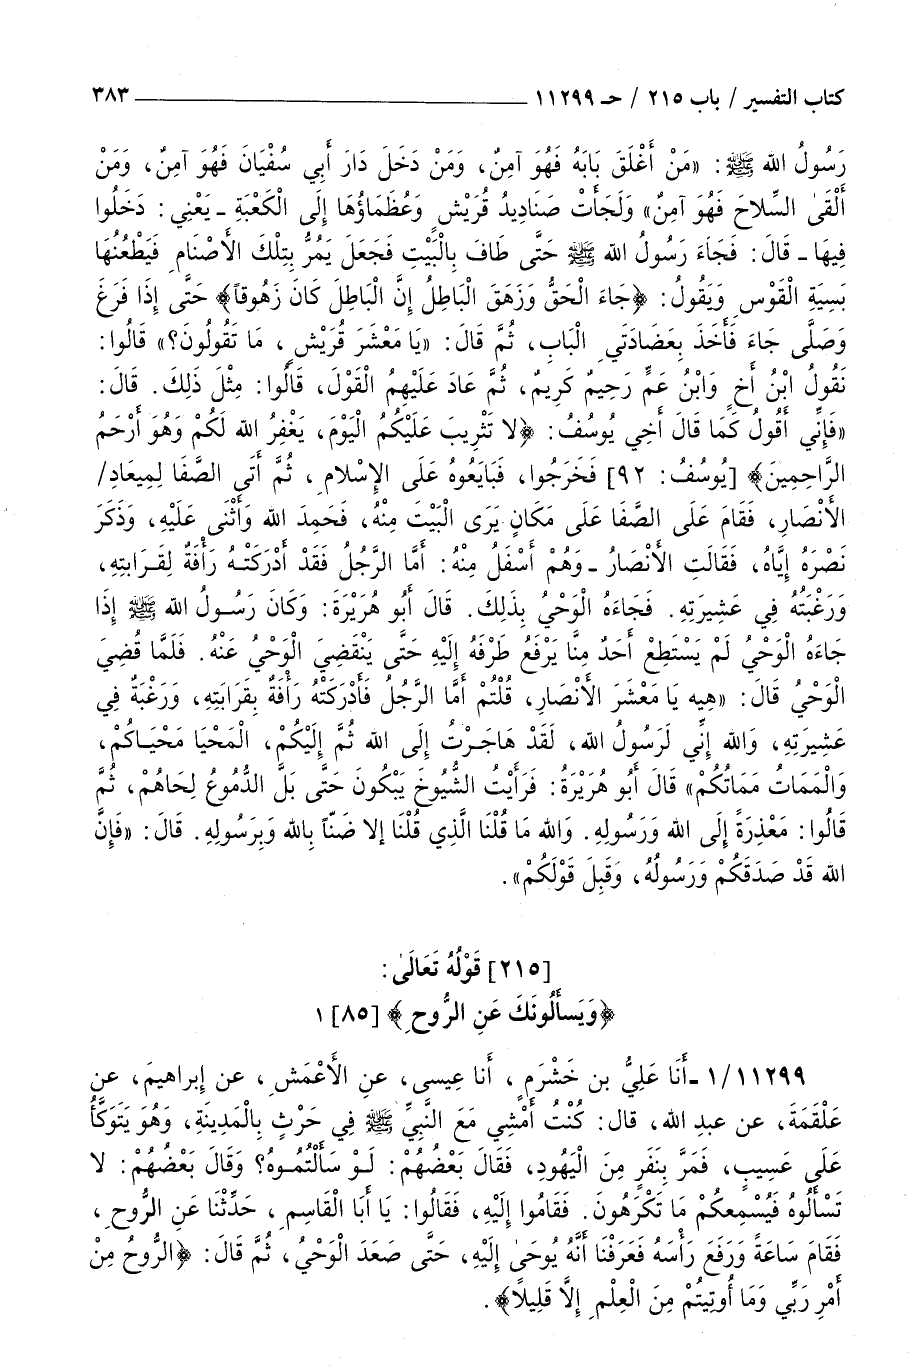 كتاب التفسير / باب ٢١٥ / حـ ١١٢٩٩ ٣٨٣
رَسُولُ الله ﷺ: «مَنْ أَغْلَقَ بَابَهُ فَهُوَ آمِنٌ، وَمَنْ دَخَلَ دَارَ أَبِي سُفْيَانَ فَهُوَ آمِنٌ، وَمَنْ
أَلْقَىٰ السِّلاحَ فَهُوَ آمِنٌ» وَلَجَأَتْ صَنَادِيدُ قُرَيْشٍ وَعُظَمَاؤُهَا إِلَى الْكَعْبَةِ ـ يَعْنِي: دَخَلُوا
فِيهَا ـ قَالَ: فَجَاءَ رَسُولُ الله ﷺ حَتَّى طَافَ بِالْبَيْتِ فَجَعَلَ يَمُرُّ بِتِلْكَ الأَصْنَامِ فَيَطْعُنُهَا
بَسِيَةِ الْقَوْسِ وَيَقُولُ: ﴿جَاءَ الْحَقُّ وَزَهَقَ الْبَاطِلُ إِنَّ الْبَاطِلَ كَانَ زَهُوقاً﴾ حَتَّى إِذَا فَرَغَ
وَصَلَّى جَاءَ فَأَخَذَ بِعَضَادَتَيِ الْبَابِ، ثُمَّ قَالَ: «يَا مَعْشَرَ قُرَيْشٍ، مَا تَقُولُونَ؟» قَالُوا:
نَقُولُ ابْنُ أَخٍ وَابْنُ عَمٍّ رَحِيمٌ كَرِيمٌ، ثُمَّ عَادَ عَلَيْهِمُ الْقَوْلَ، قَالُوا: مِثْلَ ذَلِكَ. قَالَ:
«فَإِنِّي أَقُولُ كَمَا قَالَ أَخِي يُوسُفُ: ﴿لا تَثْرِيبَ عَلَيْكُمُ الْيَوْمَ، يَغْفِرُ الله لَكُمْ وَهُوَ أَرْحَمُ
الرَّاحِمِينَ﴾ [يُوسُفُ: ٩٢] فَخَرَجُوا، فَبَايَعُوهُ عَلَى الإِسْلامِ، ثُمَّ أَتَى الصَّفَا لِمِيعَادِ/
الأَنْصَارِ، فَقَامَ عَلَى الصَّفَا عَلَى مَكَانٍ يَرَى الْبَيْتَ مِنْهُ، فَحَمِدَ الله وَأَثْنَى عَلَيْهِ، وَذَكَرَ
نَصْرَهُ إِيَّاهُ، فَقَالَتِ الأَنْصَارُ ـ وَهُمْ أَسْفَلُ مِنْهُ: أَمَّا الرَّجُلُ فَقَدْ أَدْرَكَتْهُ رَأْفَةٌ لِقَرَابَتِهِ،
وَرَغْبَتُهُ فِي عَشِيرَتِهِ. فَجَاءَهُ الْوَحْيُ بِذَلِكَ. قَالَ أَبُو هُرَيْرَةَ: وَكَانَ رَسُولُ الله ﷺ إِذَا
جَاءَهُ الْوَحْيُ لَمْ يَسْتَطِعْ أَحَدٌ مِنَّا يَرْفَعُ طَرْفَهُ إِلَيْهِ حَتَّى يَنْقَضِيَ الْوَحْيُ عَنْهُ. فَلَمَّا قُضِيَ
الْوَحْيُ قَالَ: «هِيه يَا مَعْشَرَ الأَنْصَارِ، قُلْتُمْ أَمَّا الرَّجُلُ فَأَدْرَكَتْهُ رَأْفَةٌ بِقَرَابَتِهِ، وَرَغْبَةٌ فِي
عَشِيرَتِهِ، وَالله إِنِّي لَرَسُولُ الله، لَقَدْ هَاجَرْتُ إِلَى الله ثُمَّ إِلَيْكُمْ، الْمَحْيَا مَحْيَاكُمْ،
وَالْمَمَاتُ مَمَاتُكُمْ» قَالَ أَبُو هُرَيْرَةَ: فَرَأَيْتُ الشُّيُوخَ يَبْكُونَ حَتَّى بَلَّ الدُّمُوعُ لِحَاهُمْ، ثُمَّ
قَالُوا: مَعْذِرَةً إِلَى الله وَرَسُولِهِ. وَالله مَا قُلْنَا الَّذِي قُلْنَا إلا ضَنّاً بِالله وَبِرَسُولِهِ. قَالَ: «فَإِنَّ
الله قَدْ صَدَقَكُمْ وَرَسُولُهُ، وَقَبِلَ قَوْلَكُمْ».
[٢١٥] قَوْلُهُ تَعَالَىٰ:
﴿وَيَسأَلُونَكَ عَنِ الرُّوحِ﴾ [٨٥] ١
١١٢٩٩/ ١ ـ أَنَا عَلِيُّ بن خَشْرَمٍ، أَنا عِيسى، عَنِ الأَعْمَشِ، عَن إِبراهِيمَ، عَن
عَلْقَمَةَ، عن عبدِ الله، قال: كُنْتُ أَمْشِي مَعَ النَّبِيِّ ﷺ فِي حَرْثٍ بِالْمَدِينَةِ، وَهُوَ يَتَوَكَّأُ
عَلَى عَسِيبٍ، فَمَرَّ بِنَفَرٍ مِنَ الْيَهُودِ، فَقَالَ بَعْضُهُمْ: لَوْ سَأَلْتُمُوهُ؟ وَقَالَ بَعْضُهُمْ: لا
تَسْأَلُوهُ فَيُسْمِعكُمْ مَا تَكْرَهُونَ. فَقَامُوا إِلَيْهِ، فَقَالُوا: يا أَبَا الْقَاسِمِ، حَدِّثْنَا عَنِ الرُّوحِ،
فَقَامَ سَاعَةً وَرَفَعَ رَأْسَهُ فَعَرَفْنَا أَنَّهُ يُوحَىٰ إِلَيْهِ، حَتَّى صَعَدَ الْوَحْيُ، ثُمَّ قَالَ: ﴿الرُّوحُ مِنْ
أَمْرِ رَبِّي وَمَا أُوتِيتُمْ مِنَ الْعِلْمِ إِلَّا قَلِيلًا﴾.